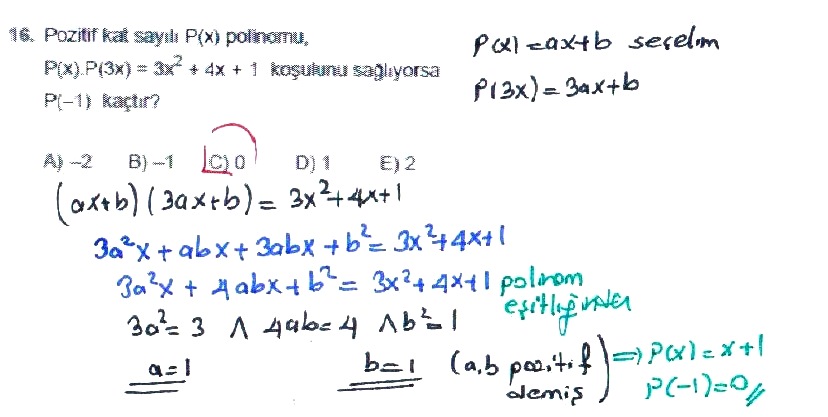 16. Pozitif kat sayılı P(x) polinomu,
P(x).P(3x) = 3x² + 4x + 1 koşulunu sağlıyorsa
P(-1) kaçtır?
P(x) = ax+b seçelim
P(3x) = 3ax+b
A) -2 B) -1 C) 0 D) 1 E) 2
(ax+b)(3ax+b) = 3x²+4x+1
3a²x + abx + 3abx + b² = 3x²+4x+1
3a²x + 4abx + b² = 3x²+4x+1 polinom
eşitliğinden
3a² = 3 ∧ 4ab = 4 ∧ b² = 1
a=1 b=1 (a,b pozitif
demiş) ⇒ P(x) = x+1
P(-1) = 0 //